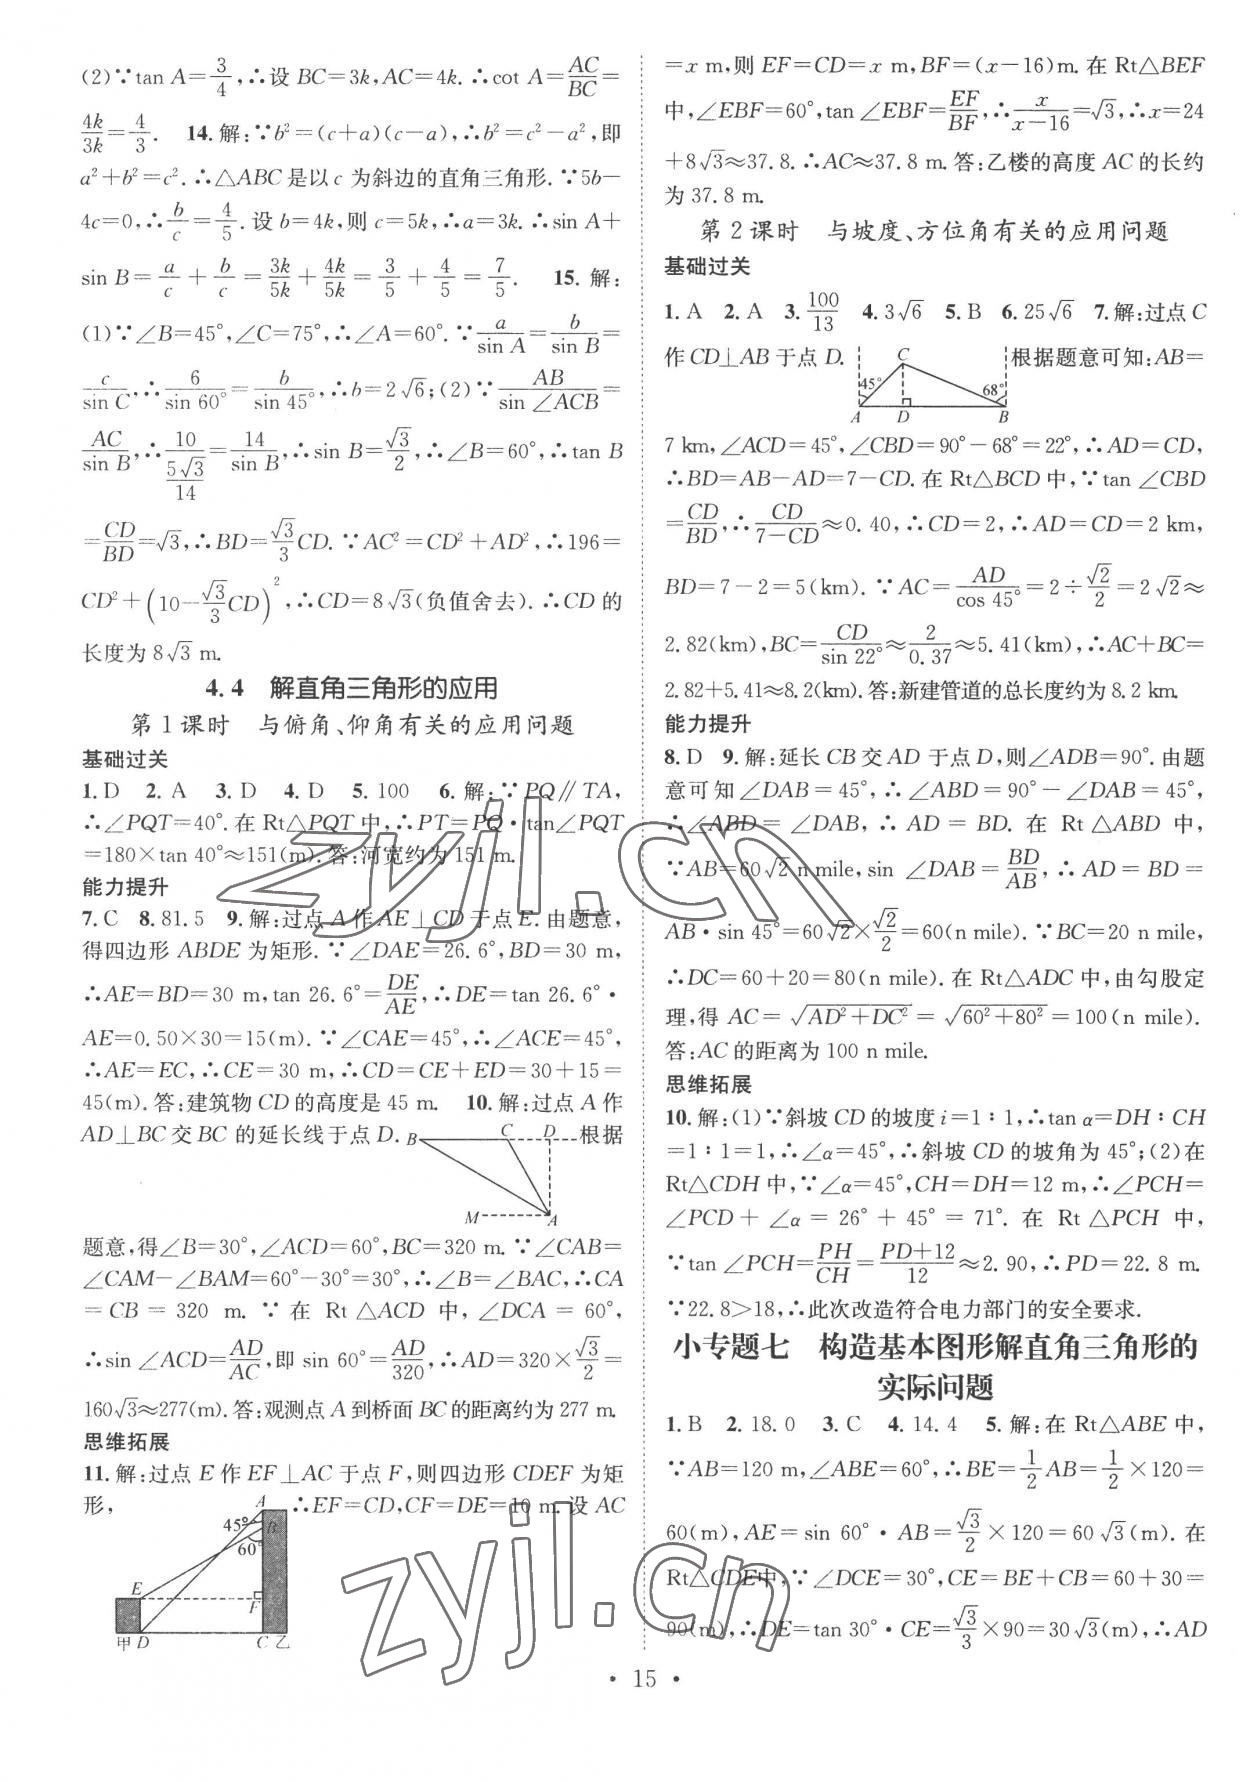 (2)∵tan A=3/4,∴设 BC=3k,AC=4k.∴cot A=AC/BC=
4k/3k=4/3. 14.解:∵b²=(c+a)(c-a),∴b²=c²-a²,即
a²+b²=c².∴△ABC是以c为斜边的直角三角形.∵5b-
4c=0,∴b/c=4/5.设b=4k,则c=5k,∴a=3k.∴sin A+
sin B=a/c+b/c=3k/5k+4k/5k=3/5+4/5=7/5. 15.解:
(1)∵∠B=45°,∠C=75°,∴∠A=60°.∵a/sin A=b/sin B=
c/sin C,∴6/sin 60°=b/sin 45°,∴b=2√6;(2)∵AB/sin∠ACB=
AC/sin B,∴10/(5√3/14)=14/sin B,∴sin B=√3/2,∴∠B=60°,∴tan B
=CD/BD=√3,∴BD=√3/3CD.∵AC²=CD²+AD²,∴196=
CD²+(10-√3/3CD)²,∴CD=8√3(负值舍去).∴CD的
长度为8√3 m.
4.4 解直角三角形的应用
第1课时 与俯角、仰角有关的应用问题
基础过关
1.D 2.A 3.D 4.D 5.100 6.解:∵PQ∥TA,
∴∠PQT=40°.在Rt△PQT中,∴PT=PQ·tan∠PQT
=180×tan 40°≈151(m).答:河宽约为151 m.
能力提升
7.C 8.81.5 9.解:过点A作AE⊥CD于点E.由题意,
得四边形ABDE为矩形.∵∠DAE=26.6°,BD=30 m,
∴AE=BD=30 m,tan 26.6°=DE/AE,∴DE=tan 26.6°·
AE=0.50×30=15(m).∵∠CAE=45°,∴∠ACE=45°,
∴AE=EC,∴CE=30 m,∴CD=CE+ED=30+15=
45(m).答:建筑物CD的高度是45 m. 10.解:过点A作
AD⊥BC交BC的延长线于点D. B C D 根据
M A
题意,得∠B=30°,∠ACD=60°,BC=320 m.∵∠CAB=
∠CAM-∠BAM=60°-30°=30°,∴∠B=∠BAC,∴CA
=CB=320 m.∵在Rt△ACD中,∠DCA=60°,
∴sin∠ACD=AD/AC,即sin 60°=AD/320,∴AD=320×√3/2=
160√3≈277(m).答:观测点A到桥面BC的距离约为277 m.
思维拓展
11.解:过点E作EF⊥AC于点F,则四边形CDEF为矩
形, ∴EF=CD,CF=DE=10 m.设AC
A
45° B
60°
E F
甲 D C 乙
=x m,则EF=CD=x m,BF=(x-16)m.在Rt△BEF
中,∠EBF=60°,tan∠EBF=EF/BF,∴x/(x-16)=√3,∴x=24
+8√3≈37.8.∴AC≈37.8 m.答:乙楼的高度AC的长约
为37.8 m.
第2课时 与坡度、方位角有关的应用问题
基础过关
1.A 2.A 3.100/13 4.3√6 5.B 6.25√6 7.解:过点C
作CD⊥AB于点D. C 45° 68° A D B 根据题意可知:AB=
7 km,∠ACD=45°,∠CBD=90°-68°=22°,∴AD=CD,
∴BD=AB-AD=7-CD.在Rt△BCD中,∵tan∠CBD
=CD/BD,∴CD/(7-CD)≈0.40,∴CD=2,∴AD=CD=2 km,
BD=7-2=5(km).∵AC=AD/cos 45°=2÷√2/2=2√2≈
2.82(km),BC=CD/sin 22°≈2/0.37≈5.41(km),∴AC+BC=
2.82+5.41≈8.2(km).答:新建管道的总长度约为8.2 km.
能力提升
8.D 9.解:延长CB交AD于点D,则∠ADB=90°.由题
意可知∠DAB=45°,∴∠ABD=90°-∠DAB=45°,
∴∠ABD=∠DAB,∴AD=BD.在Rt△ABD中,
∵AB=60√2 n mile,sin∠DAB=BD/AB,∴AD=BD=
AB·sin 45°=60√2×√2/2=60(n mile).∵BC=20 n mile,
∴DC=60+20=80(n mile).在Rt△ADC中,由勾股定
理,得AC=√(AD²+DC²)=√(60²+80²)=100(n mile).
答:AC的距离为100 n mile.
思维拓展
10.解:(1)∵斜坡CD的坡度i=1∶1,∴tan α=DH∶CH
=1∶1=1,∴∠α=45°,∴斜坡CD的坡角为45°;(2)在
Rt△CDH中,∵∠α=45°,CH=DH=12 m,∴∠PCH=
∠PCD+∠α=26°+45°=71°.在Rt△PCH中,
∵tan∠PCH=PH/CH=(PD+12)/12≈2.90,∴PD=22.8 m.
∵22.8>18,∴此次改造符合电力部门的安全要求.
小专题七 构造基本图形解直角三角形的
实际问题
1.B 2.18.0 3.C 4.14.4 5.解:在Rt△ABE中,
∵AB=120 m,∠ABE=60°,∴BE=1/2AB=1/2×120=
60(m),AE=sin 60°·AB=√3/2×120=60√3(m).在
Rt△CDE中,∵∠DCE=30°,CE=BE+CB=60+30=
90(m),∴DE=tan 30°·CE=√3/3×90=30√3(m),∴AD
·15·
zyjl.cn
zyjl.cn